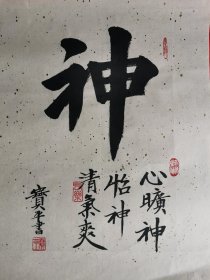 神
心曠神
怡神
清氣爽
寶平書